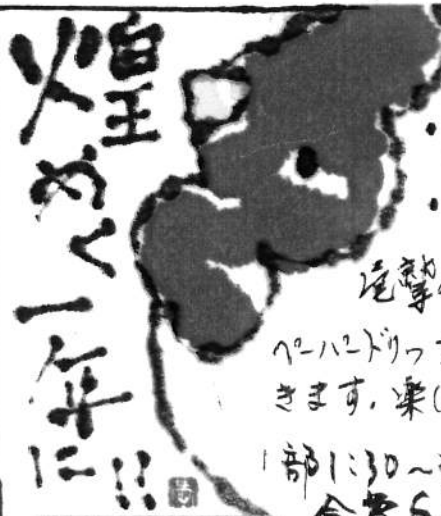 煌めく一年に!!
ペーパードリッ
きます。楽し
1部1:30~
会費